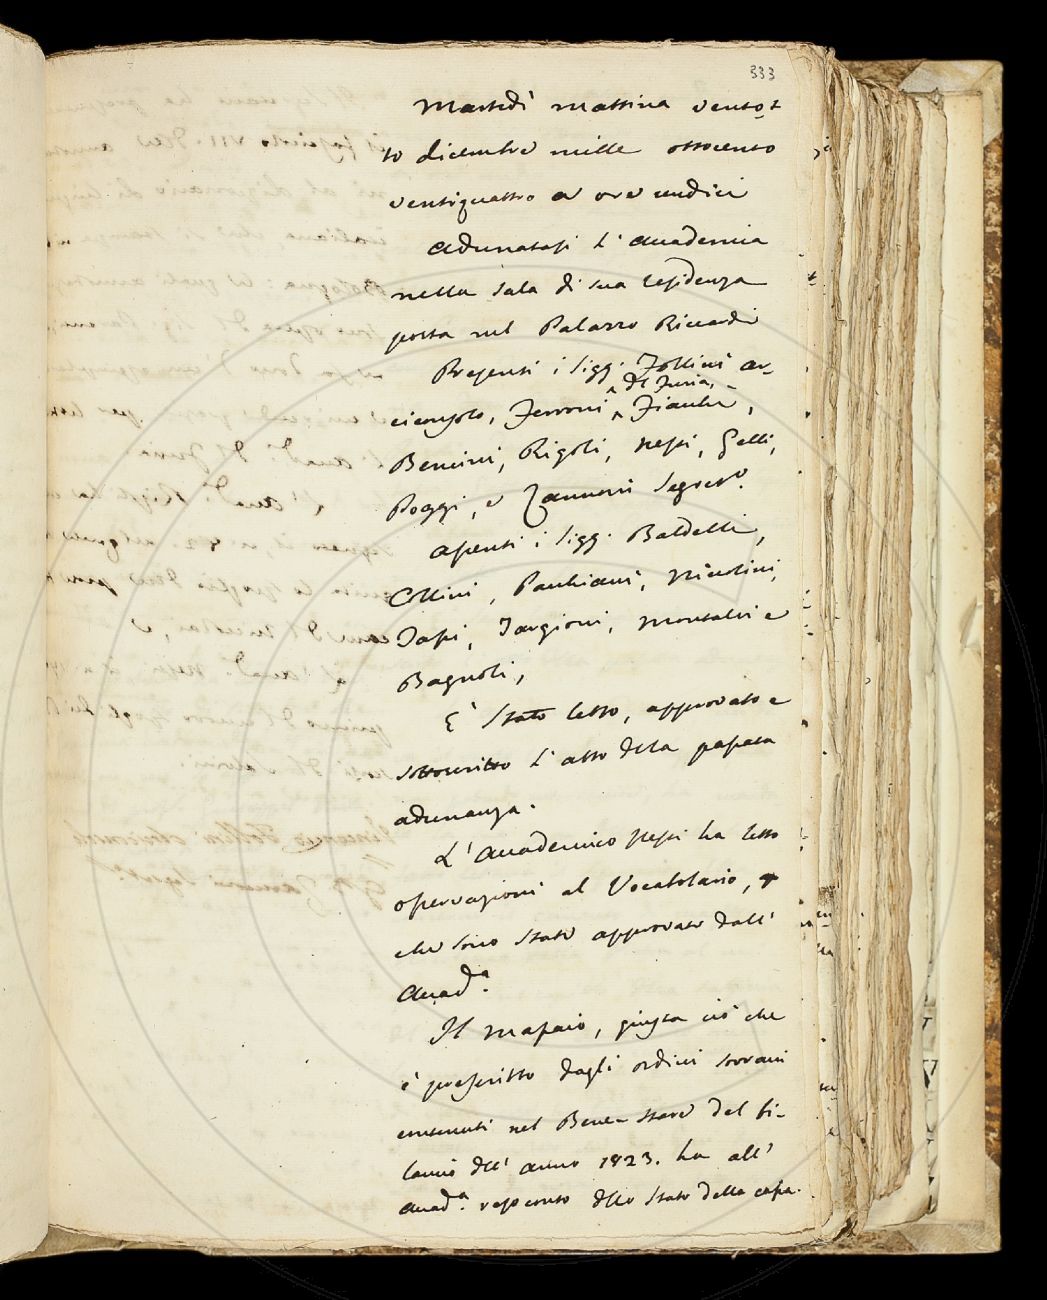 333
Martedì mattina ventot
to dicembre mille ottocento
ventiquattro a ore undici
Adunatasi l'Accademia
nella sala di sua residenza
posta nel Palazzo Riccardi
Presenti i Sigg. Follini ar-
ciconsolo, Ferroni, del Furia, Fiacchi,
Bencini, Rigoli, Nesi, Gelli,
Poggi, e Zannoni Segret.o
Assenti i Sigg. Baldelli,
Collini, Pauchiani, Niccolini,
Tassi, Targioni, Montalvi e
Bagnoli,
E' stato letto, approvato e
sottoscritto l'atto della passata
adunanza.
L'Accademico Nesi ha letto
osservazioni al Vocabolario,
che sono state approvate dall'
Accad.a
Il Massaio, giusta ciò che
è prescritto dagli ordini sovrani
contenuti nel Bene-stare del bi-
lancio dell'anno 1823. ha all'
Accad.a reso conto dello stato della cassa.